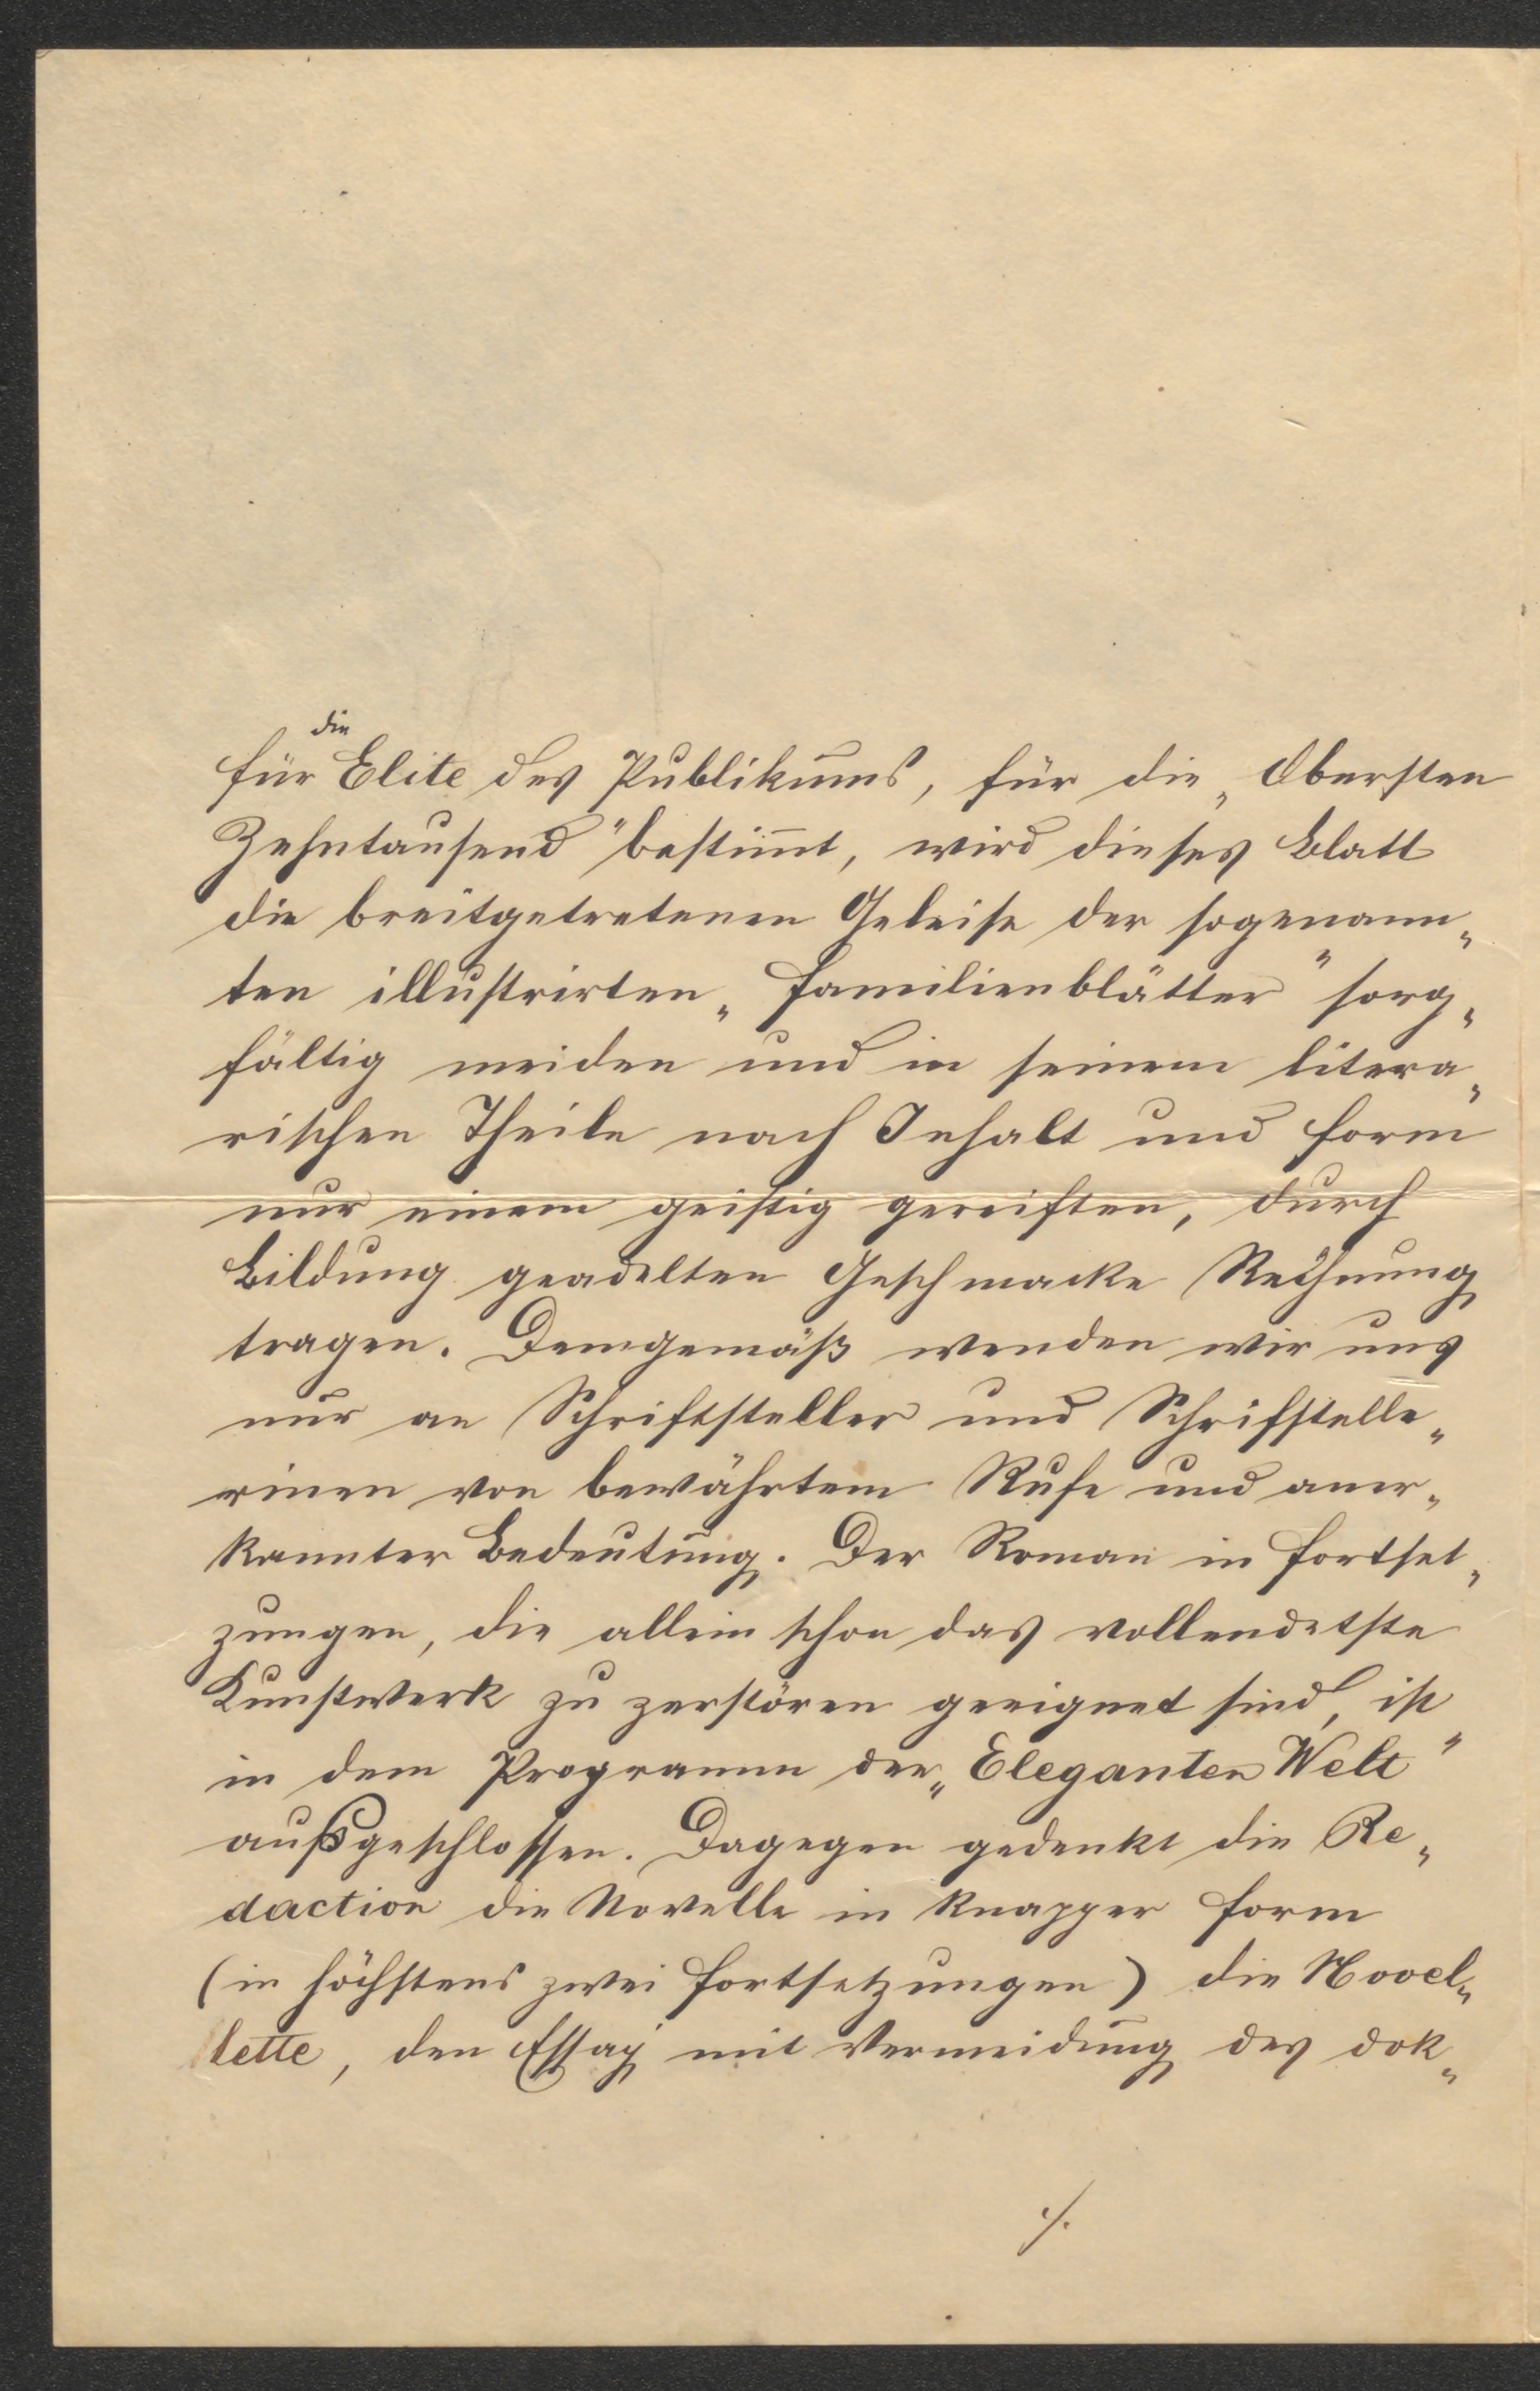 für die Elite des Publikums, für die „Obersten
Zehntausend" bestim̅t, wird dieses Blatt
die breitgetretenen Geleise der sogenann„
ten illustrirten „Familienblätter" sorg„
fältig meiden und in seinem litera„
rischen Theile nach Inhalt und Form
nur einem geistig gereiften, durch
Bildung geadelten Geschmacke Rechnung
tragen. Demgemäß wenden wir uns
nur an Schriftsteller und Schrifstelle„
rinen von bewährtem Rufe und aner„
kannter Bedeutung. Der Roman in Fortset„
zungen, die allein schon das vollendetste
Kunstwerk zu zerstören geeignet sind, ist
in dem Programm der „Eleganten Welt"
außgeschlossen. Dagegen gedenkt die Re„
daction die Novelle in knapper Form
(in höchstens zwei Fortsetzungen) die Novel„
lette, den Essay mit Vermeidung des dok„
./.